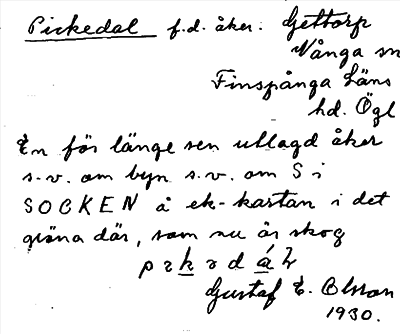 Pickedal f.d. åker. Gettorp
Vånga sn
Finspånga läns
hd. Ögl
En för länge sen utlagd åker
s.v. om byn s.v. om S i
SOCKEN å ek-kartan i det
gröna där, som nu är skog
Gustaf E. Olsson
1930.